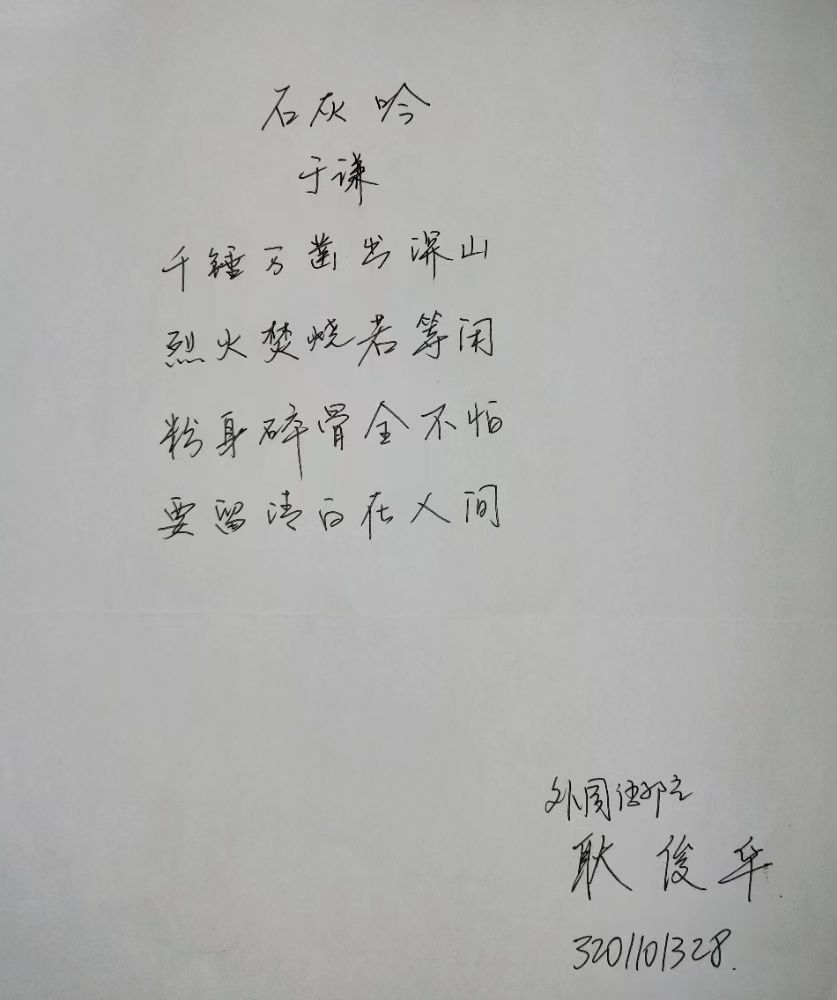 石灰吟
于谦
千锤万凿出深山
烈火焚烧若等闲
粉身碎骨全不怕
要留清白在人间
外国语
耿俊华
3201101328.